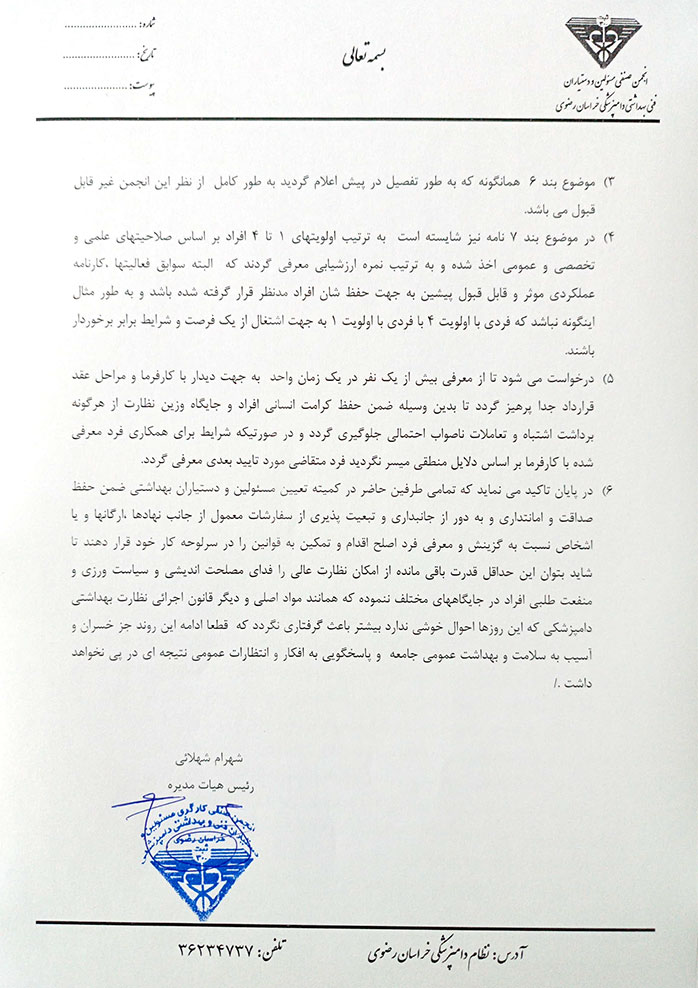 بسمه تعالی
شماره: ........................
تاریخ: ........................
پیوست: ........................
انجمن صنفی مسئولین و دستیاران
فنی بهداشتی دامپزشکی خراسان رضوی
۳) موضوع بند ۶ همانگونه که به طور تفصیل در پیش اعلام گردید به طور کامل از نظر این انجمن غیر قابل
قبول می باشد.
۴) در موضوع بند ۷ نامه نیز شایسته است به ترتیب اولویتهای ۱ تا ۴ افراد بر اساس صلاحیتهای علمی و
تخصصی و عمومی اخذ شده و به ترتیب نمره ارزشیابی معرفی گردند که البته سوابق فعالیتها ،کارنامه
عملکردی موثر و قابل قبول پیشین به جهت حفظ شان افراد مدنظر قرار گرفته شده باشد و به طور مثال
اینگونه نباشد که فردی با اولویت ۴ با فردی با اولویت ۱ به جهت اشتغال از یک فرصت و شرایط برابر برخوردار
باشند.
۵) درخواست می شود تا از معرفی بیش از یک نفر در یک زمان واحد به جهت دیدار با کارفرما و مراحل عقد
قرارداد جدا پرهیز گردد تا بدین وسیله ضمن حفظ کرامت انسانی افراد و جایگاه وزین نظارت از هرگونه
برداشت اشتباه و تعاملات ناصواب احتمالی جلوگیری گردد و در صورتیکه شرایط برای همکاری فرد معرفی
شده با کارفرما بر اساس دلایل منطقی میسر نگردید فرد متقاضی مورد تایید بعدی معرفی گردد.
۶) در پایان تاکید می نماید که تمامی طرفین حاضر در کمیته تعیین مسئولین و دستیاران بهداشتی ضمن حفظ
صداقت و امانتداری و به دور از جانبداری و تبعیت پذیری از سفارشات معمول از جانب نهادها ،ارگانها و یا
اشخاص نسبت به گزینش و معرفی فرد اصلح اقدام و تمکین به قوانین را در سرلوحه کار خود قرار دهند تا
شاید بتوان این حداقل قدرت باقی مانده از امکان نظارت عالی را فدای مصلحت اندیشی و سیاست ورزی و
منفعت طلبی افراد در جایگاههای مختلف ننموده که همانند مواد اصلی و دیگر قانون اجرائی نظارت بهداشتی
دامپزشکی که این روزها احوال خوشی ندارد بیشتر باعث گرفتاری نگردد که قطعا ادامه این روند جز خسران و
آسیب به سلامت و بهداشت عمومی جامعه و پاسخگویی به افکار و انتظارات عمومی نتیجه ای در پی نخواهد
داشت ./
شهرام شهلائی
رئیس هیات مدیره
انجمن صنفی کارگری مسئولین و
فنی و بهداشتی
خراسان رضوی
ثبت
۳۰۰
آدرس: نظام دامپزشکی خراسان رضوی
تلفن: ۳۶۲۳۴۷۳۷